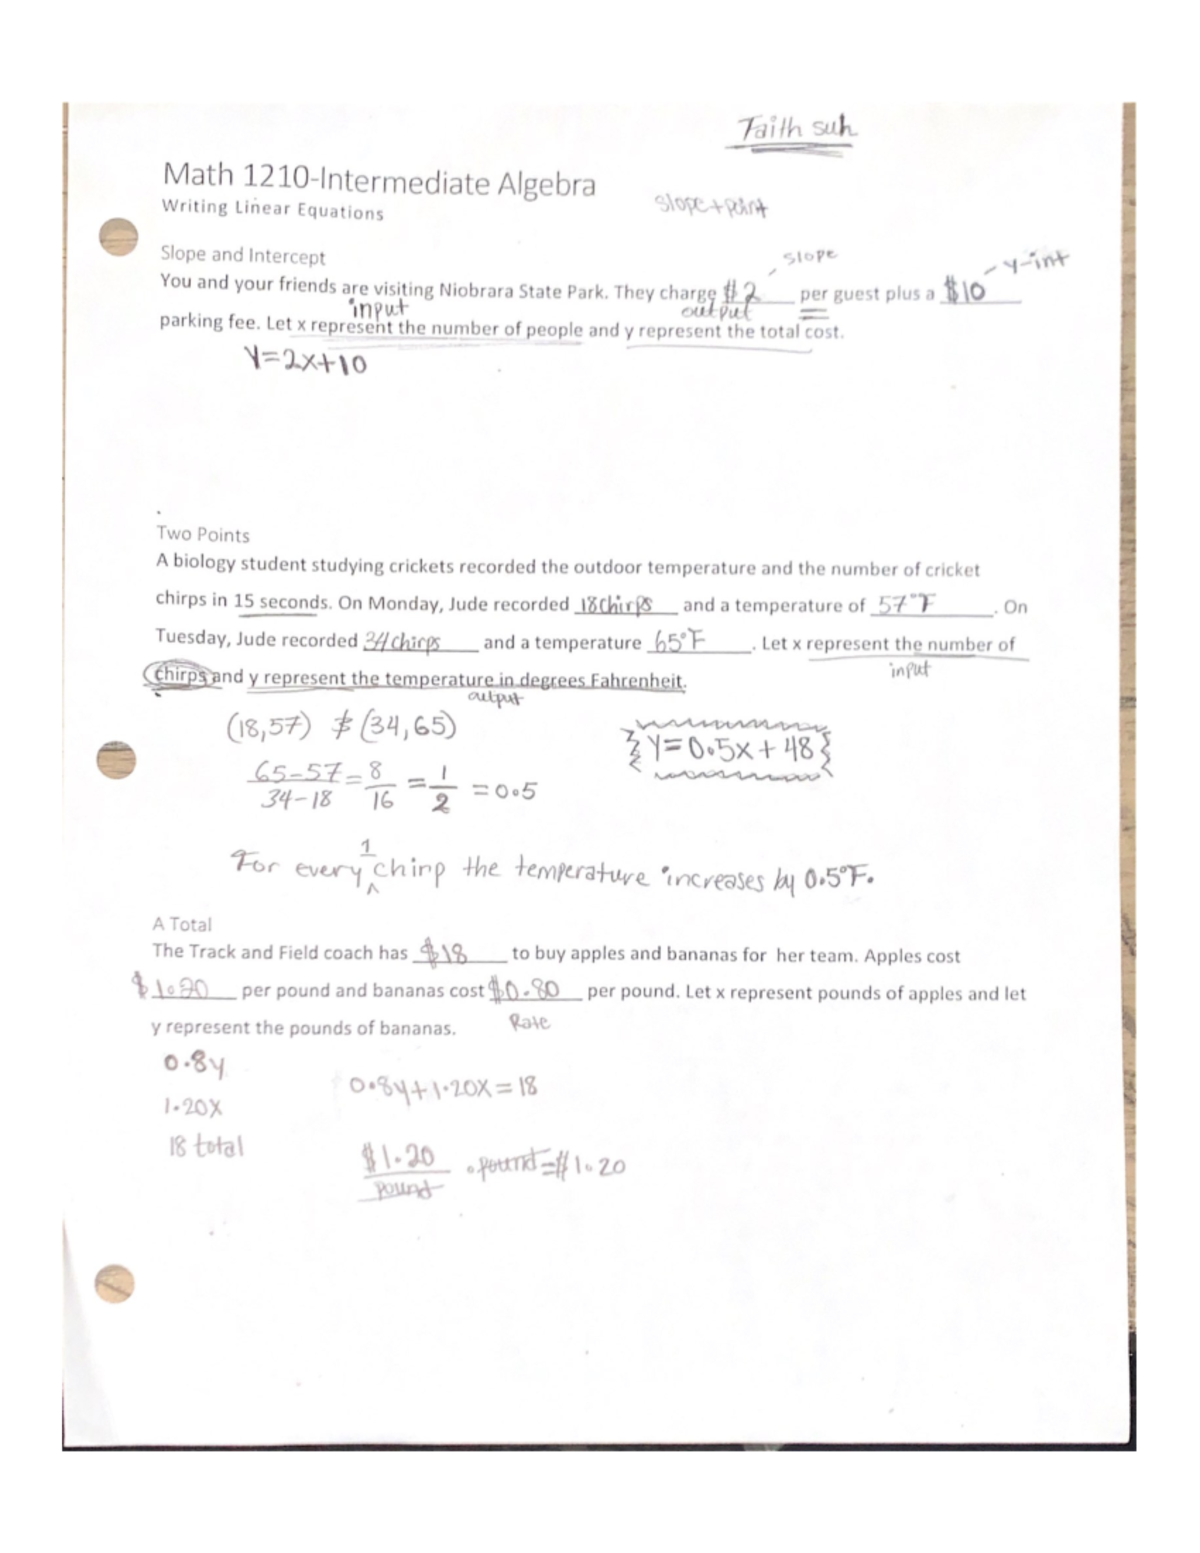 Faith suh
Math 1210-Intermediate Algebra
Writing Linear Equations
slope+point
Slope and Intercept
slope
y-int
You and your friends are visiting Niobrara State Park. They charge $2 per guest plus a $10
input output
parking fee. Let x represent the number of people and y represent the total cost.
Y=2x+10
Two Points
A biology student studying crickets recorded the outdoor temperature and the number of cricket
chirps in 15 seconds. On Monday, Jude recorded 18chirps and a temperature of 57°F. On
Tuesday, Jude recorded 34chirps and a temperature 65°F. Let x represent the number of
input
chirps and y represent the temperature in degrees Fahrenheit.
output
(18,57) & (34,65)
Y=0.5x+48
65-57 = 8 = 1 = 0.5
34-18 16 2
1
For every chirp the temperature increases by 0.5°F.
A Total
The Track and Field coach has $18 to buy apples and bananas for her team. Apples cost
$1.20 per pound and bananas cost $0.80 per pound. Let x represent pounds of apples and let
y represent the pounds of bananas.
Rate
0.8y
0.8y+1.20x=18
1.20x
18 total
$1.20 . pound=$1.20
pound